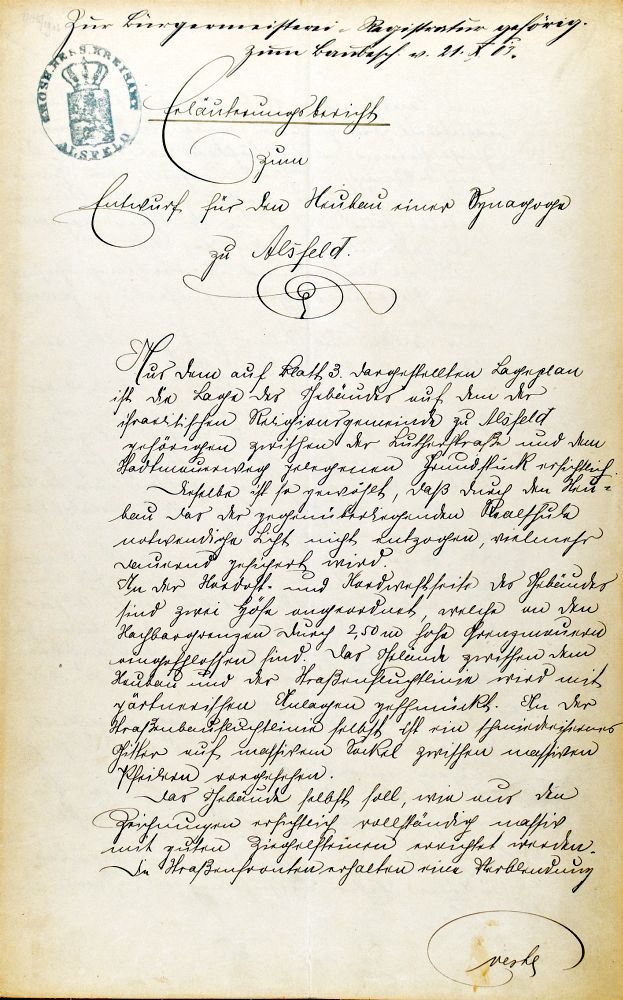 Zur Bürgermeisterei-Registratur gehörig.
zum Baubesch. v. 21. X 03.
GROSH. HESS. KREISAMT
ALSFELD
Erläuterungsbericht
zum
Entwurf für den Neubau einer Synagoge
zu Alsfeld.
Aus dem auf Blatt 3. dargestellten Lageplan
ist die Lage des Gebäudes auf dem der
israelitischen Religionsgemeinde zu Alsfeld
gehörigen zwischen der Lutherstraße und dem
Stadtmauerweg gelegenen Grundstück ersichtlich.
Dieselbe ist so gewählt, daß durch den Neu-
bau das der gegenüberliegenden Realschule
notwendige Licht nicht entzogen, vielmehr
dauernd gesichert wird.
An der Nordost- und Nordwestseite des Gebäudes
sind zwei Höfe angeordnet, welche an den
Nachbargrenzen durch 2,50 m hohe Grenzmauern
eingeschlossen sind. Das Gelände zwischen dem
Neubau und der Straßenfluchtlinie wird mit
gärtnerischen Anlagen geschmückt. An der
Straßenbaufluchtlinie selbst ist ein schmiedeisernes
Gitter auf massivem Sockel zwischen massiven
Pfeilern vorgesehen.
Das Gebäude selbst soll, wie aus den
Zeichnungen ersichtlich vollständig massiv
mit guten Ziegelsteinen errichtet werden.
Die Straßenfronten erhalten eine Verblendung